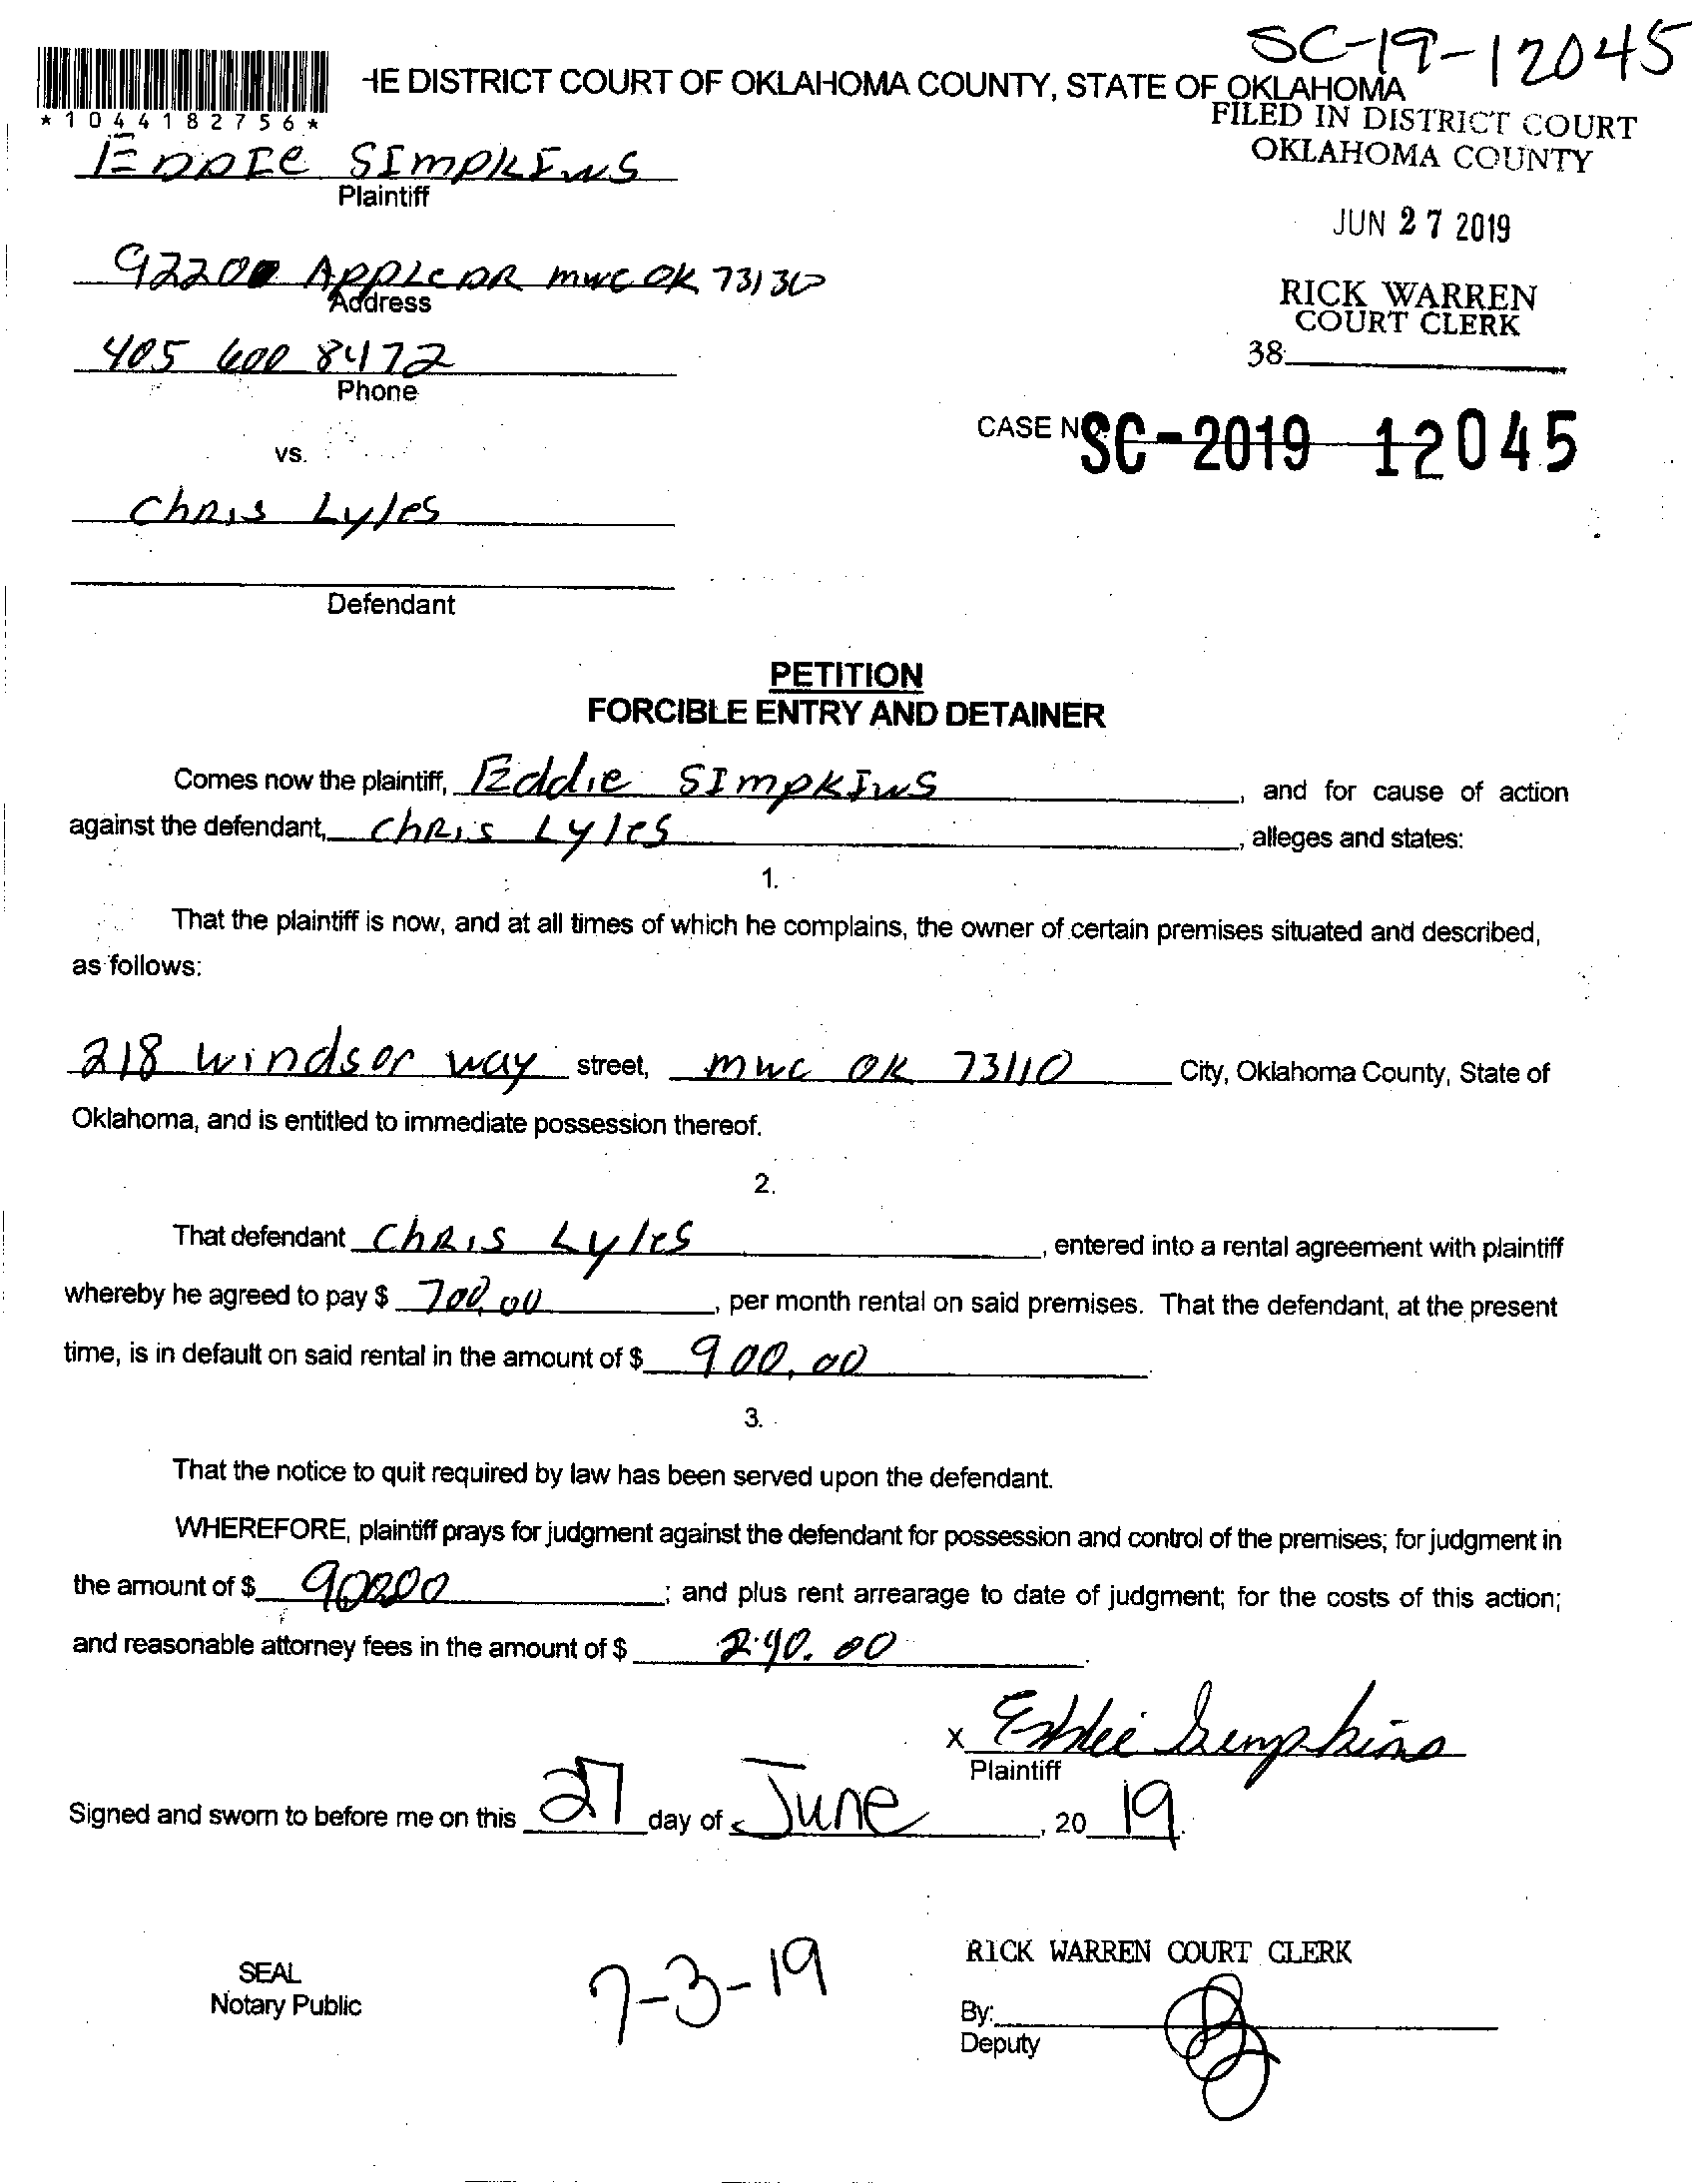 SC-19-12045
HE DISTRICT COURT OF OKLAHOMA COUNTY, STATE OF OKLAHOMA
*1044182756*
FILED IN DISTRICT COURT
OKLAHOMA COUNTY
EDDIE SIMPKINS
Plaintiff
JUN 27 2019
APPLE DR MWC OK 73130
Address
RICK WARREN
COURT CLERK
405 600 8472
Phone
38
CASE NO. SC-2019 12045
vs.
Chris Lyles
Defendant
PETITION
FORCIBLE ENTRY AND DETAINER
Comes now the plaintiff, Eddie SIMPKINS, and for cause of action
against the defendant, Chris Lyles, alleges and states:
1.
That the plaintiff is now, and at all times of which he complains, the owner of certain premises situated and described,
as follows:
218 windsor way street, mwc OK 73110 City, Oklahoma County, State of
Oklahoma, and is entitled to immediate possession thereof.
2.
That defendant Chris Lyles, entered into a rental agreement with plaintiff
whereby he agreed to pay $ 700.00, per month rental on said premises. That the defendant, at the present
time, is in default on said rental in the amount of $ 900.00.
3.
That the notice to quit required by law has been served upon the defendant.
WHEREFORE, plaintiff prays for judgment against the defendant for possession and control of the premises; for judgment in
the amount of $ ; and plus rent arrearage to date of judgment; for the costs of this action;
and reasonable attorney fees in the amount of $ 290.00.
x Eddie Simpkins
Plaintiff
Signed and sworn to before me on this 27 day of June, 20 19.
RICK WARREN COURT CLERK
SEAL
Notary Public
7-3-19
By:
Deputy